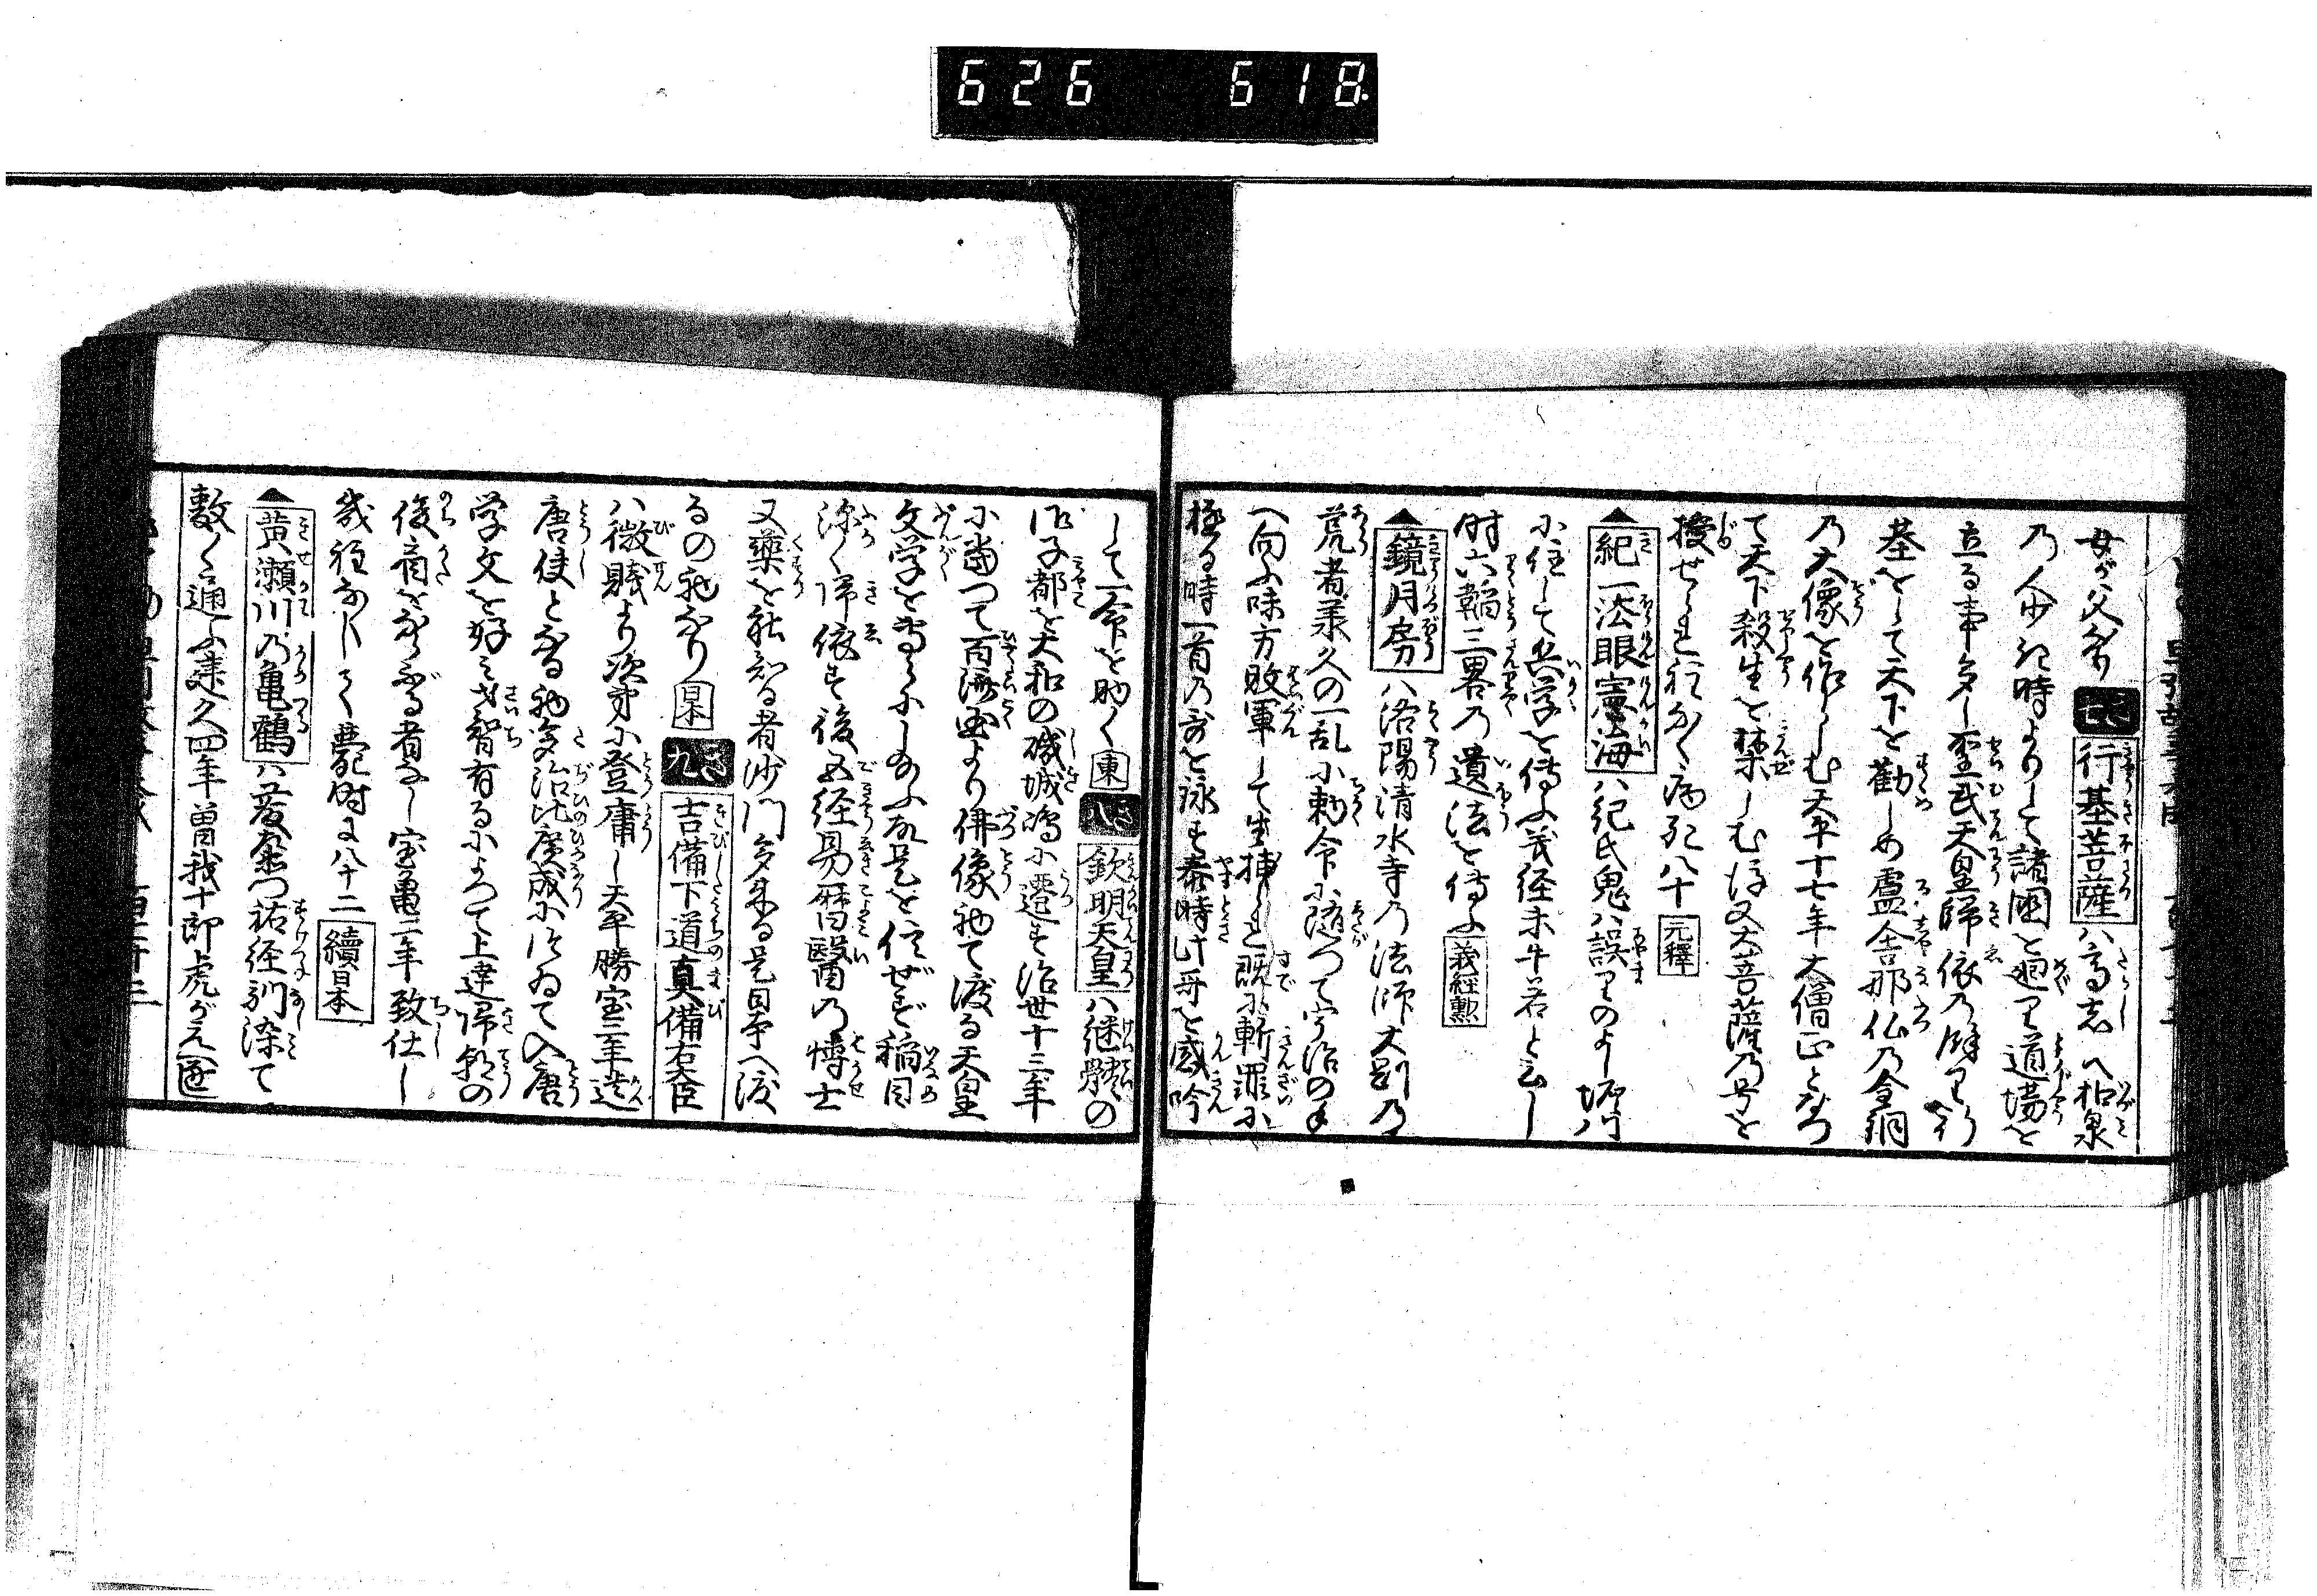 626 618
女が父なり 七き 行基菩薩 ハ高志へ和泉
乃人少き時よりして諸国を廻り道場を
立る事多し聖武天皇帰依の餘り行
基をして天下を勧しめ盧舎那仏乃金銅
乃大像を作しむ天平十七年大僧正となつ
て天下殺生を禁しむ後又大菩薩乃号を
授せられ程なく病死八十 元釋
▲紀一法眼憲海 ハ紀氏鬼ハ誤りのよし堀川
に住して兵学を伝ふ義経未牛若と云し
時六韜三畧乃遺法を伝ふ 義経勲
▲鏡月房 ハ洛陽清水寺乃法師大剛乃
荒者承久の乱に勅命に随つて宇治の手
へ向ふ味方敗軍して生捕られ既に斬罪に
極る時一首乃哥を詠ず泰時此哥を感吟
して一命を助く 東 八き 欽明天皇 ハ継體の
御子都を大和の磯城嶋に遷す治世十三年
に当つて百済国より佛像初て渡る天皇
文学を専らにし給ふ故是を信ぜず稲目
深く帰依す後五経易暦醫の博士
又薬を能知る者沙門多来る是日本へ渡
るの初なり 日本 九き 吉備下道真備右大臣
ハ微賤より次第に登庸し天平勝宝三年遣
唐使となる初多治比広成に従ゐて入唐
学文を好ミ才智有るによつて上達帰朝の
後肩をならぶる者なし宝亀二年致仕し
幾程なくして薨時に八十二 續日本
▲黄瀬川乃亀鶴 ハ工藤左衛門祐経馴染て
数く通ふ建久四年曽我十郎虎がえ逗